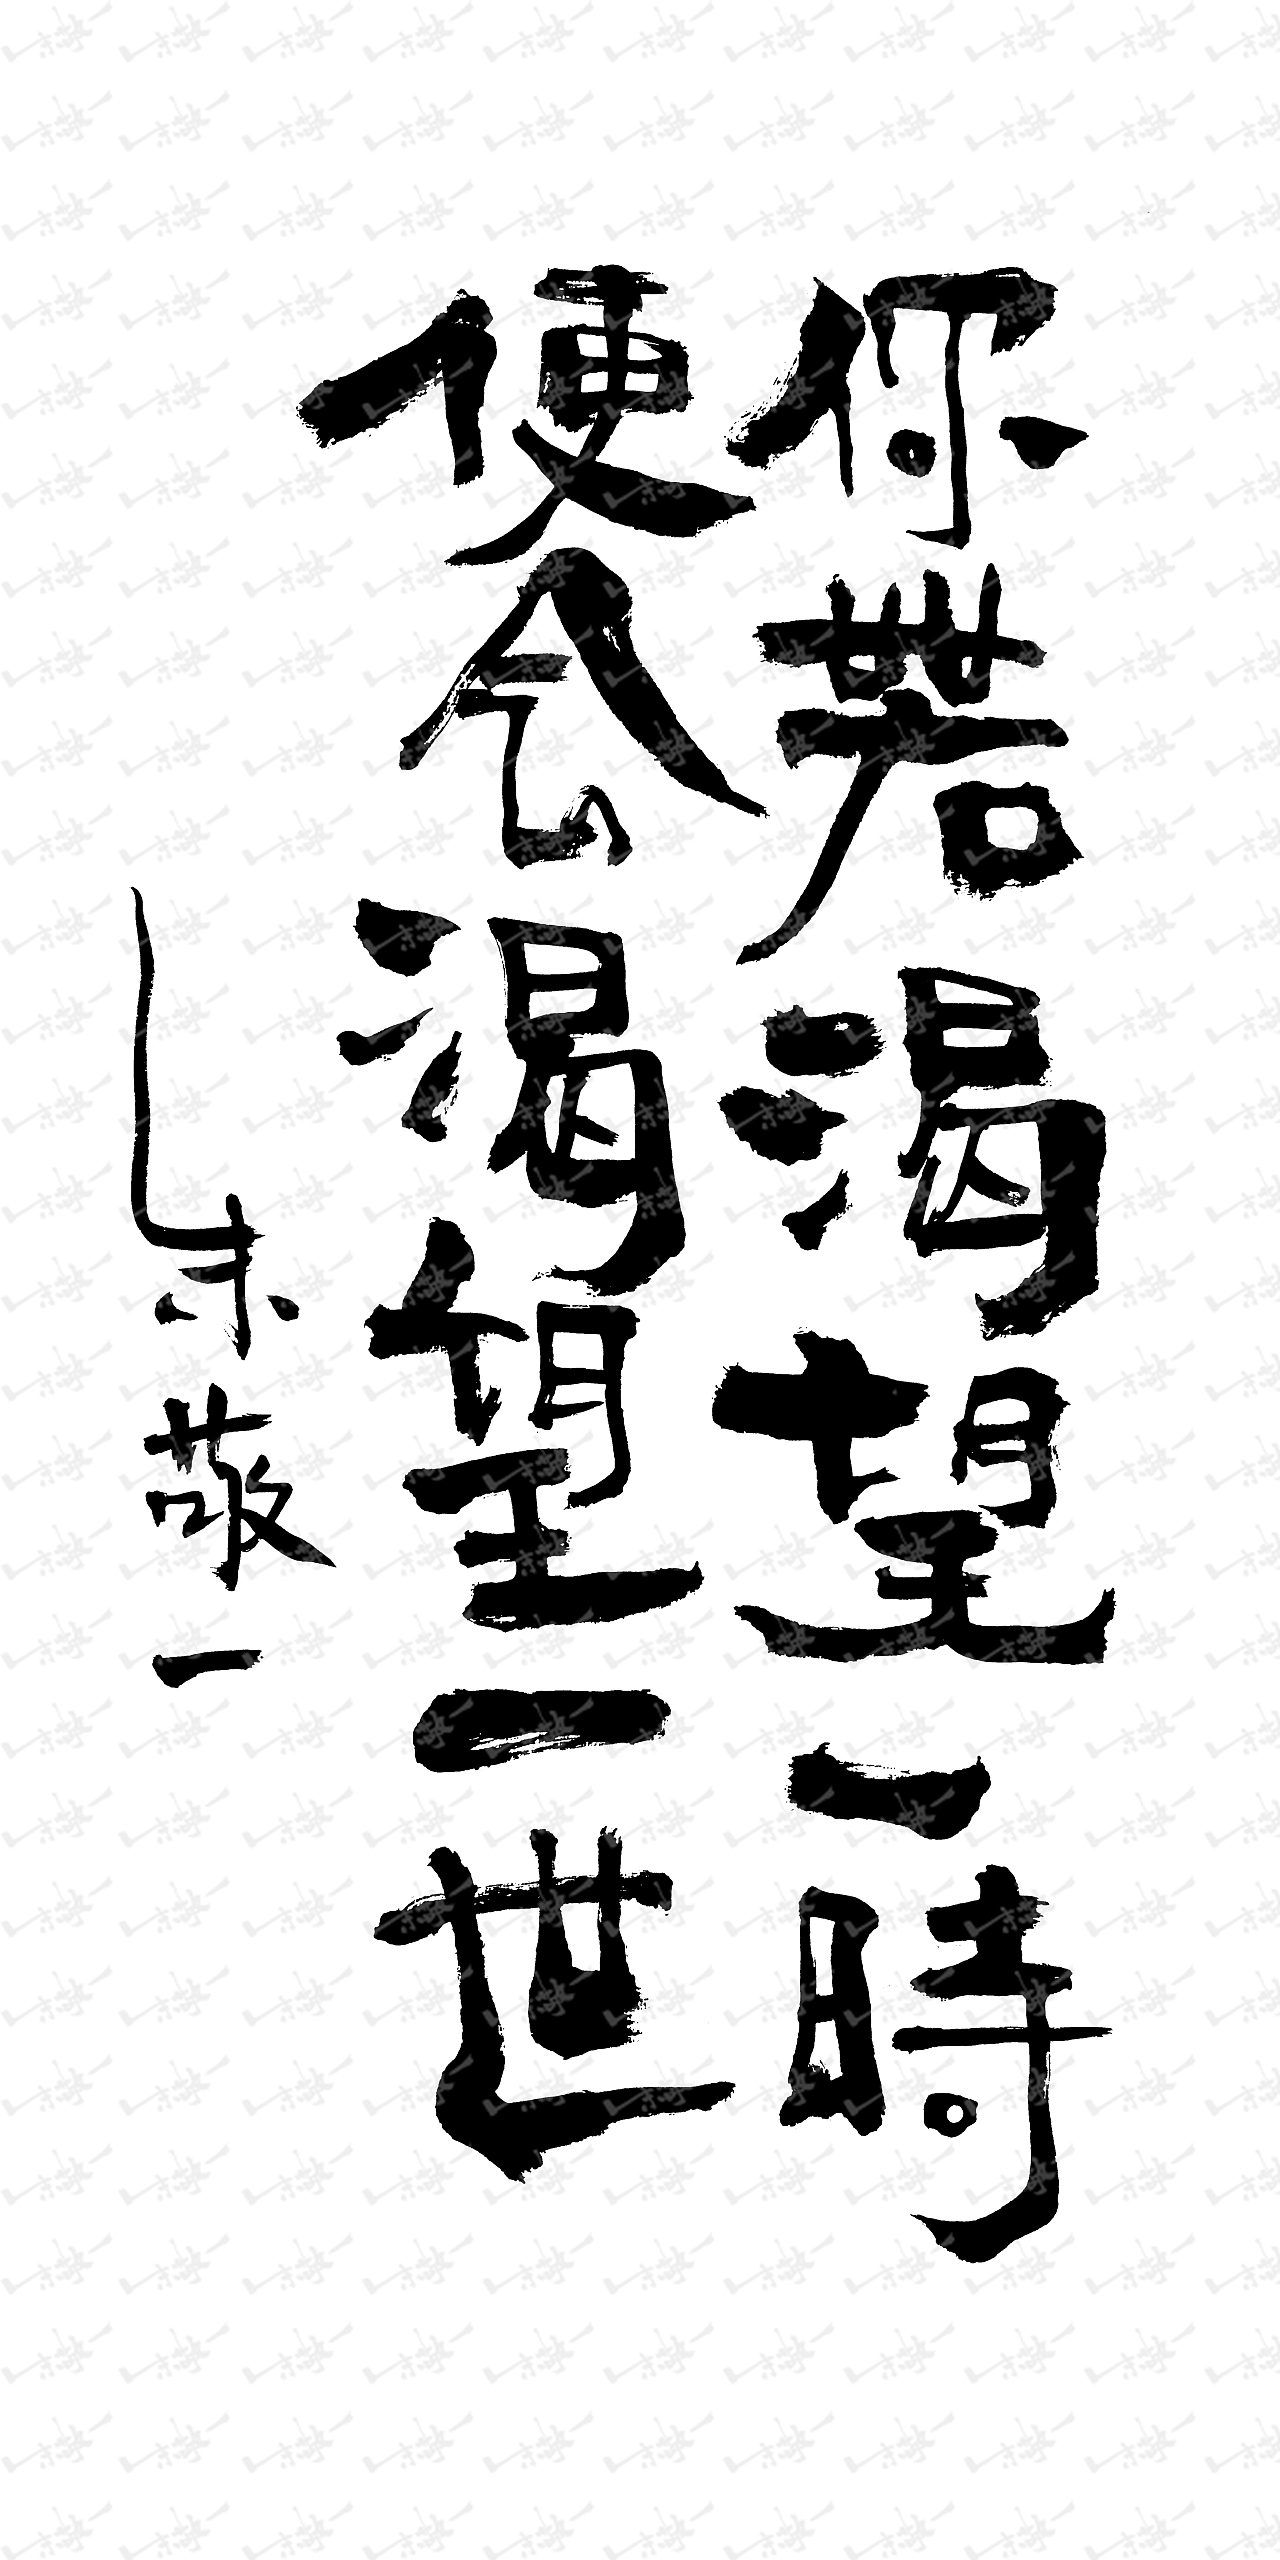 你若渴望一時
便会渴望一世
朱敬一